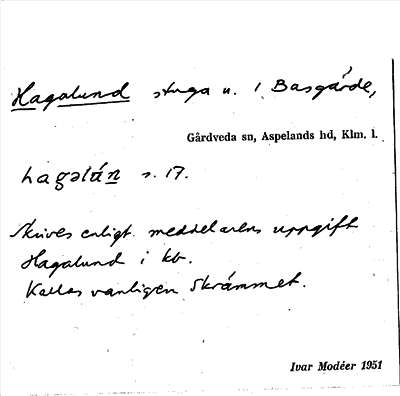 Hagalund stuga u. 1 Basgärde,
Gårdveda sn, Aspelands hd, Klm. l.
hagəlán s. 17.
Skrives enligt meddelarens uppgift
Hagalund i kb.
Kallas vanligen Skrämmet.
Ivar Modéer 1951